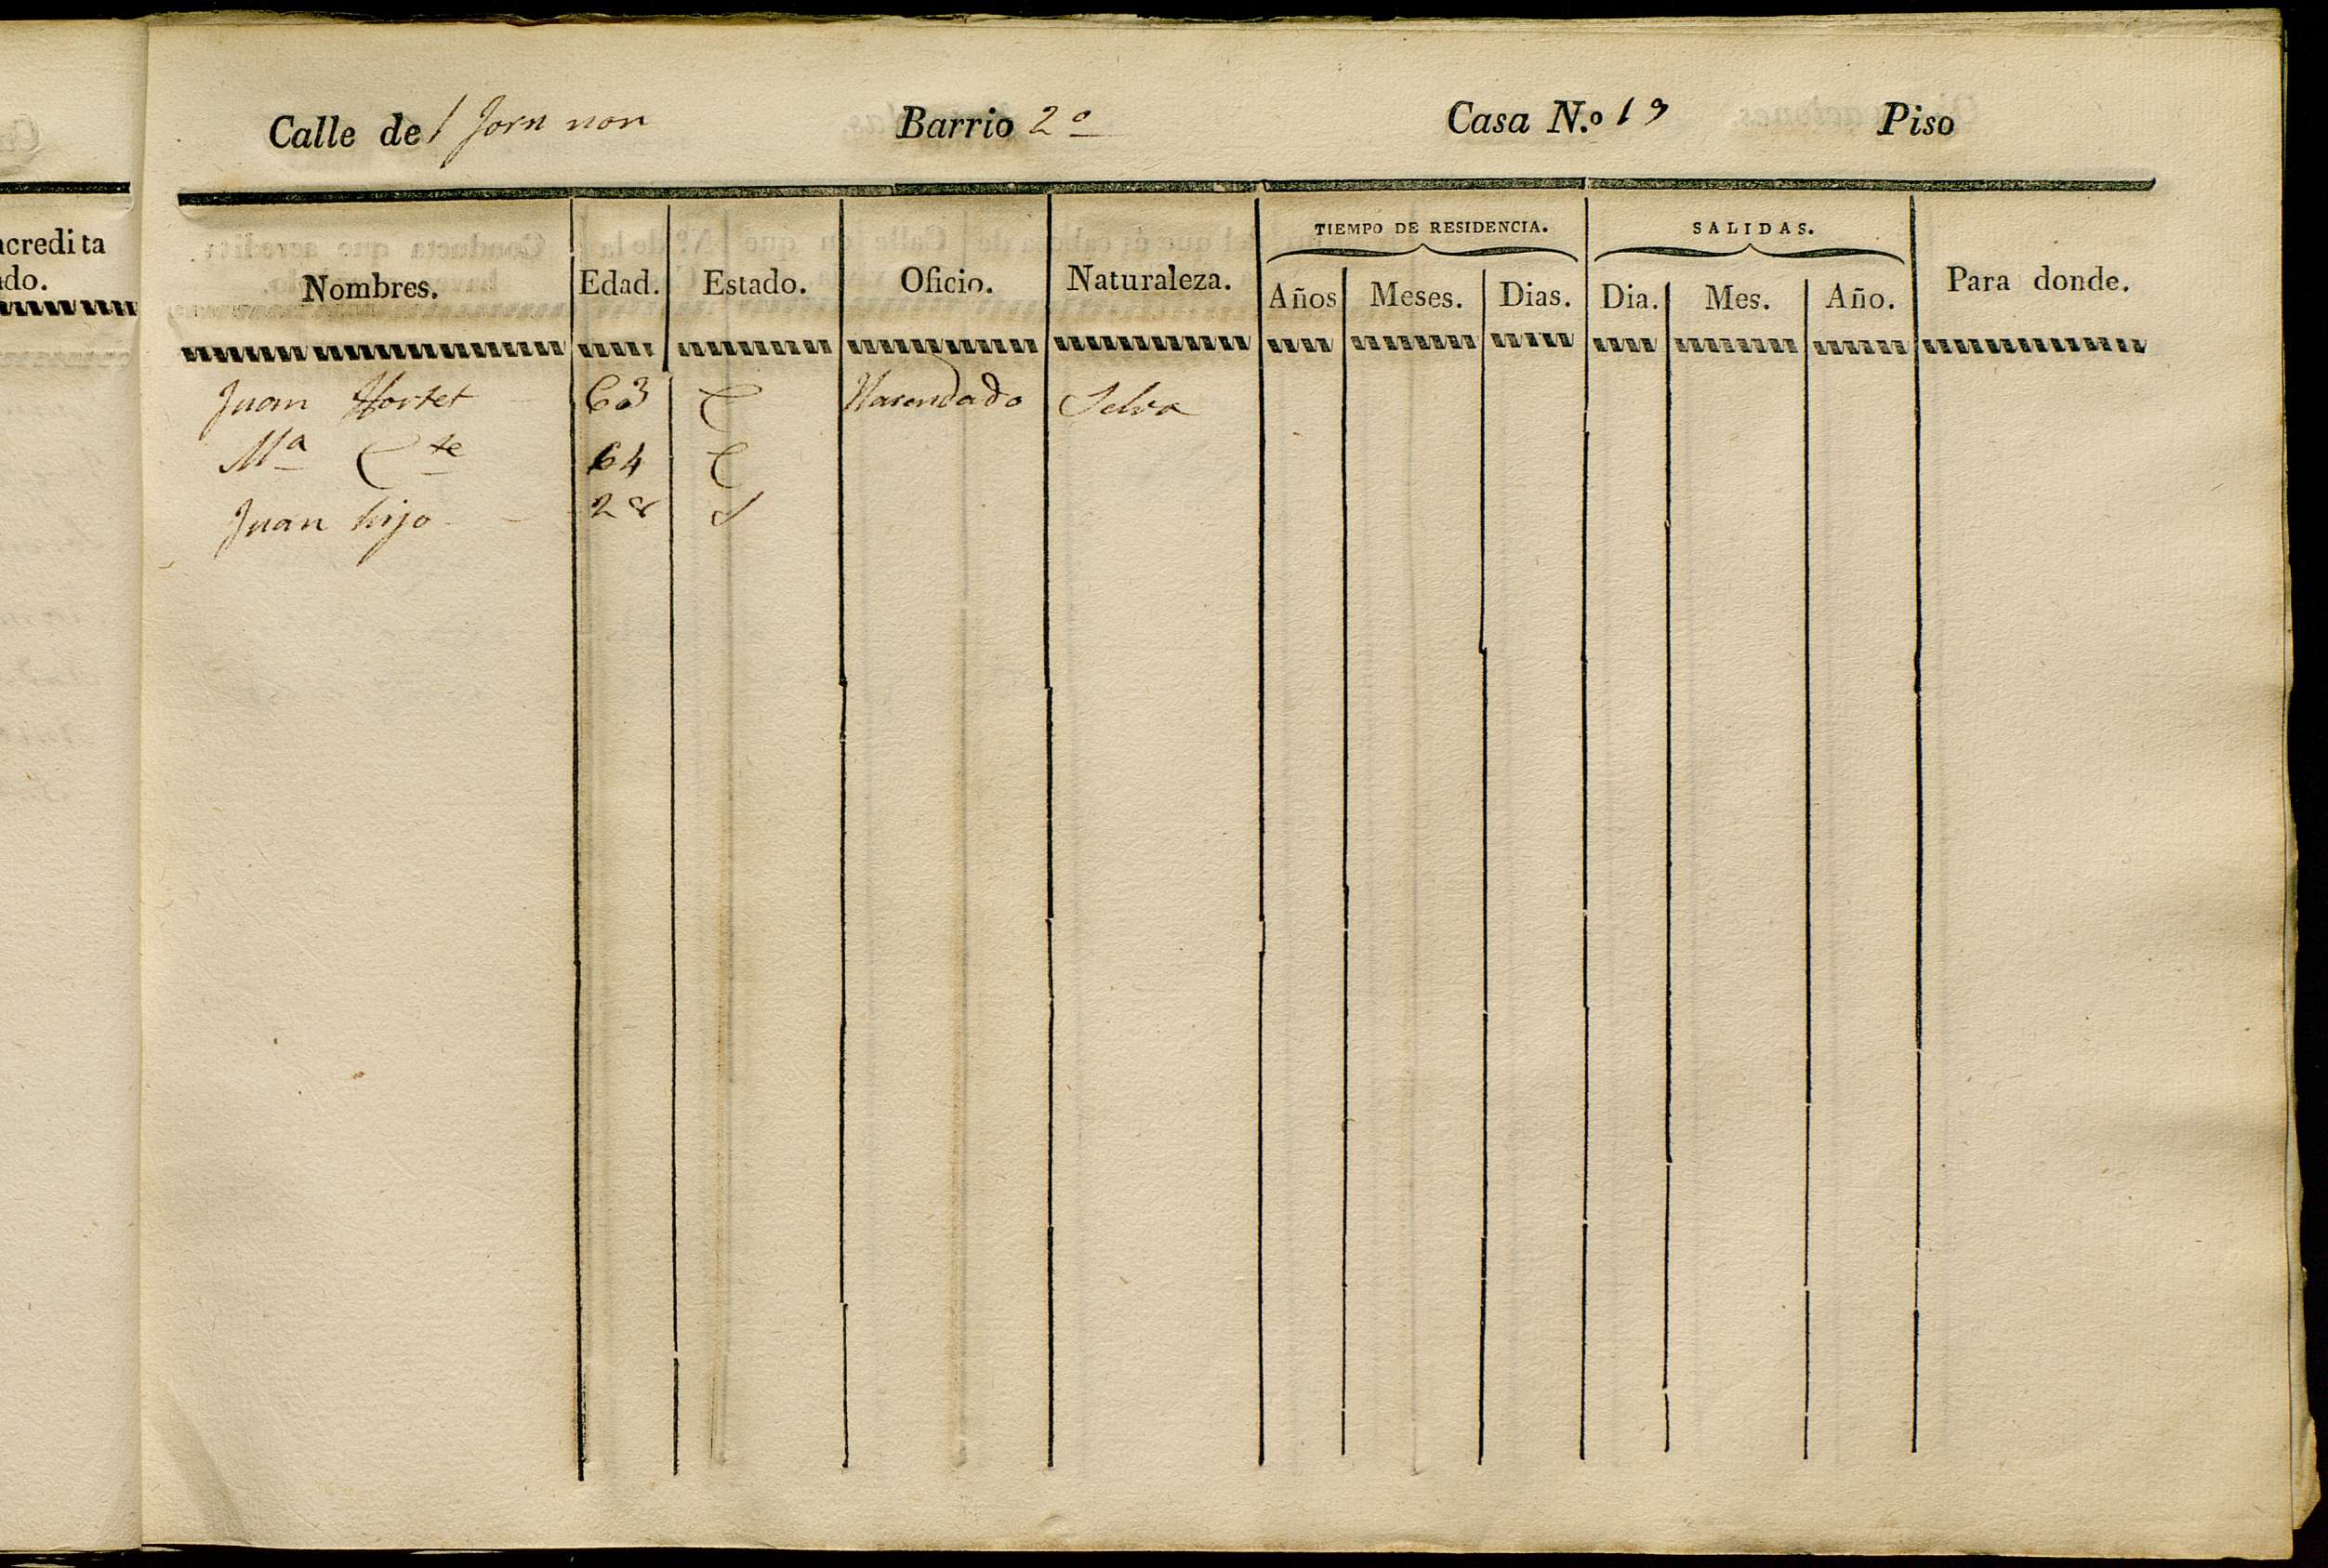 acredita
do.
Calle de l forn nou Barrio 2º Casa N.º 19 Piso
TIEMPO DE RESIDENCIA. SALIDAS.
Nombres. Edad. Estado. Oficio. Naturaleza. Años Meses. Dias. Dia. Mes. Año. Para donde.
Juan Hortet 63 C Hacendado Selva
Mª Cte 64 C
Juan hijo 28 S